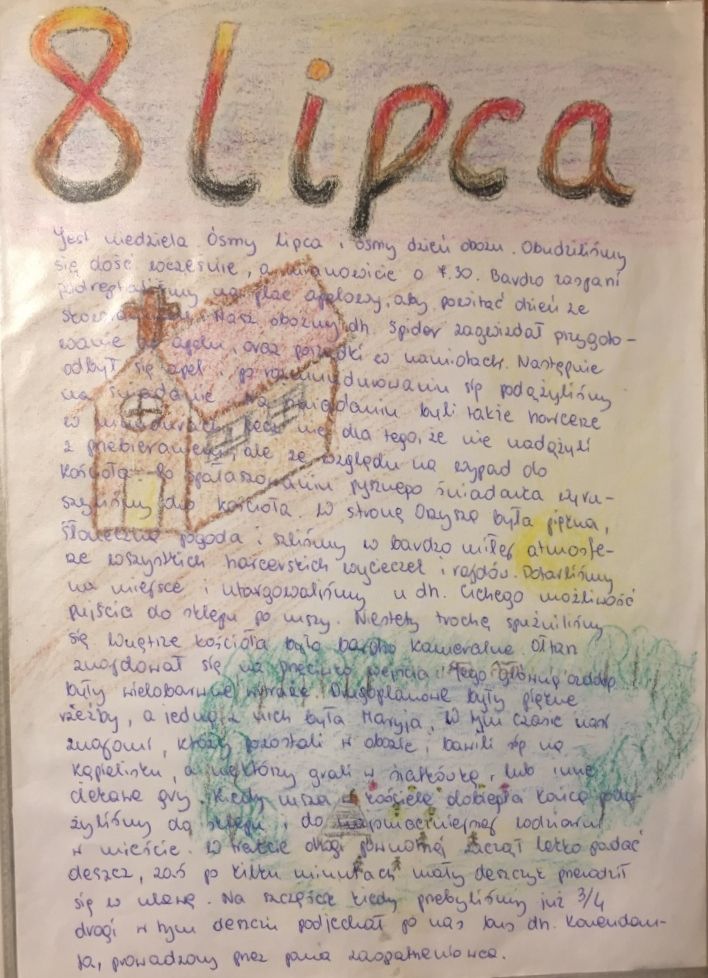 8 lipca
Jest niedziela. Ósmy lipca i ósmy dzień obozu. Obudziliśmy
się dość wcześnie, a mianowicie o 7.30. Bardzo zaspani
na plac apelowy, aby powitać dzień ze
Nasz obozowy dh. Spider zagwizdał przygoto-
wanie do apelu, oraz porządki w namiotach. Następnie
odbył się apel po rozmundurowaniu się podążyliśmy
na śniadanie. Na śniadaniu byli także harcerze
w mundurach, lecz nie dla tego, że nie nadążyli
z przebieraniem, ale ze względu na wypad do
kościoła. Po spałaszowaniu pysznego śniadanka wyru-
szyliśmy do kościoła. W stronę Orzysza była piękna,
słoneczna pogoda i szliśmy w bardzo miłej atmosfe-
rze wszystkich harcerskich wycieczek i rajdów. Dotarliśmy
na miejsce i utargowaliśmy u dh. Cichego możliwość
pujścia do sklepu po mszy. Niestety trochę spuźniliśmy
się. Wnętrze kościoła było bardzo kameralne. Ołtarz
znajdował się na przeciwko wejścia. Jego główną ozdobą
były wielobarwne witraże. Drugoplanowe były piękne
rzeźby, a jedną z nich była Maryja. W tym czasie nasi
znajomi, którzy pozostali w obozie, bawili się na
kąpielisku, a niektórzy grali w siatkówkę, lub inne
ciekawe gry. Kiedy msza w kościele dobiegła końca podą-
żyliśmy do sklepu i do najsmaczniejszej lodziarni
w mieście. W trakcie drogi powrotnej zaczął lekko padać
deszcz, zaś po kilku minutach mały deszczyk przerodził
się w ulewę. Na szczęście kiedy przebyliśmy już 3/4
drogi w tym deszczu podjechał po nas bus dh. Komendan-
ta, prowadzony przez pana zaopatrzeniowca.